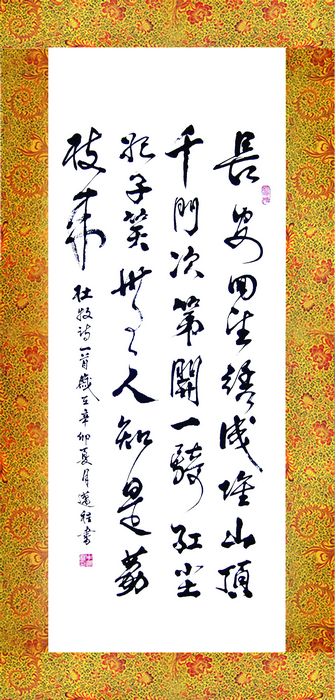 長安回望繡成堆山頂
千門次第開一騎紅塵
妃子笑無人知是荔
枝來
杜牧诗一首歲在辛卯夏月書